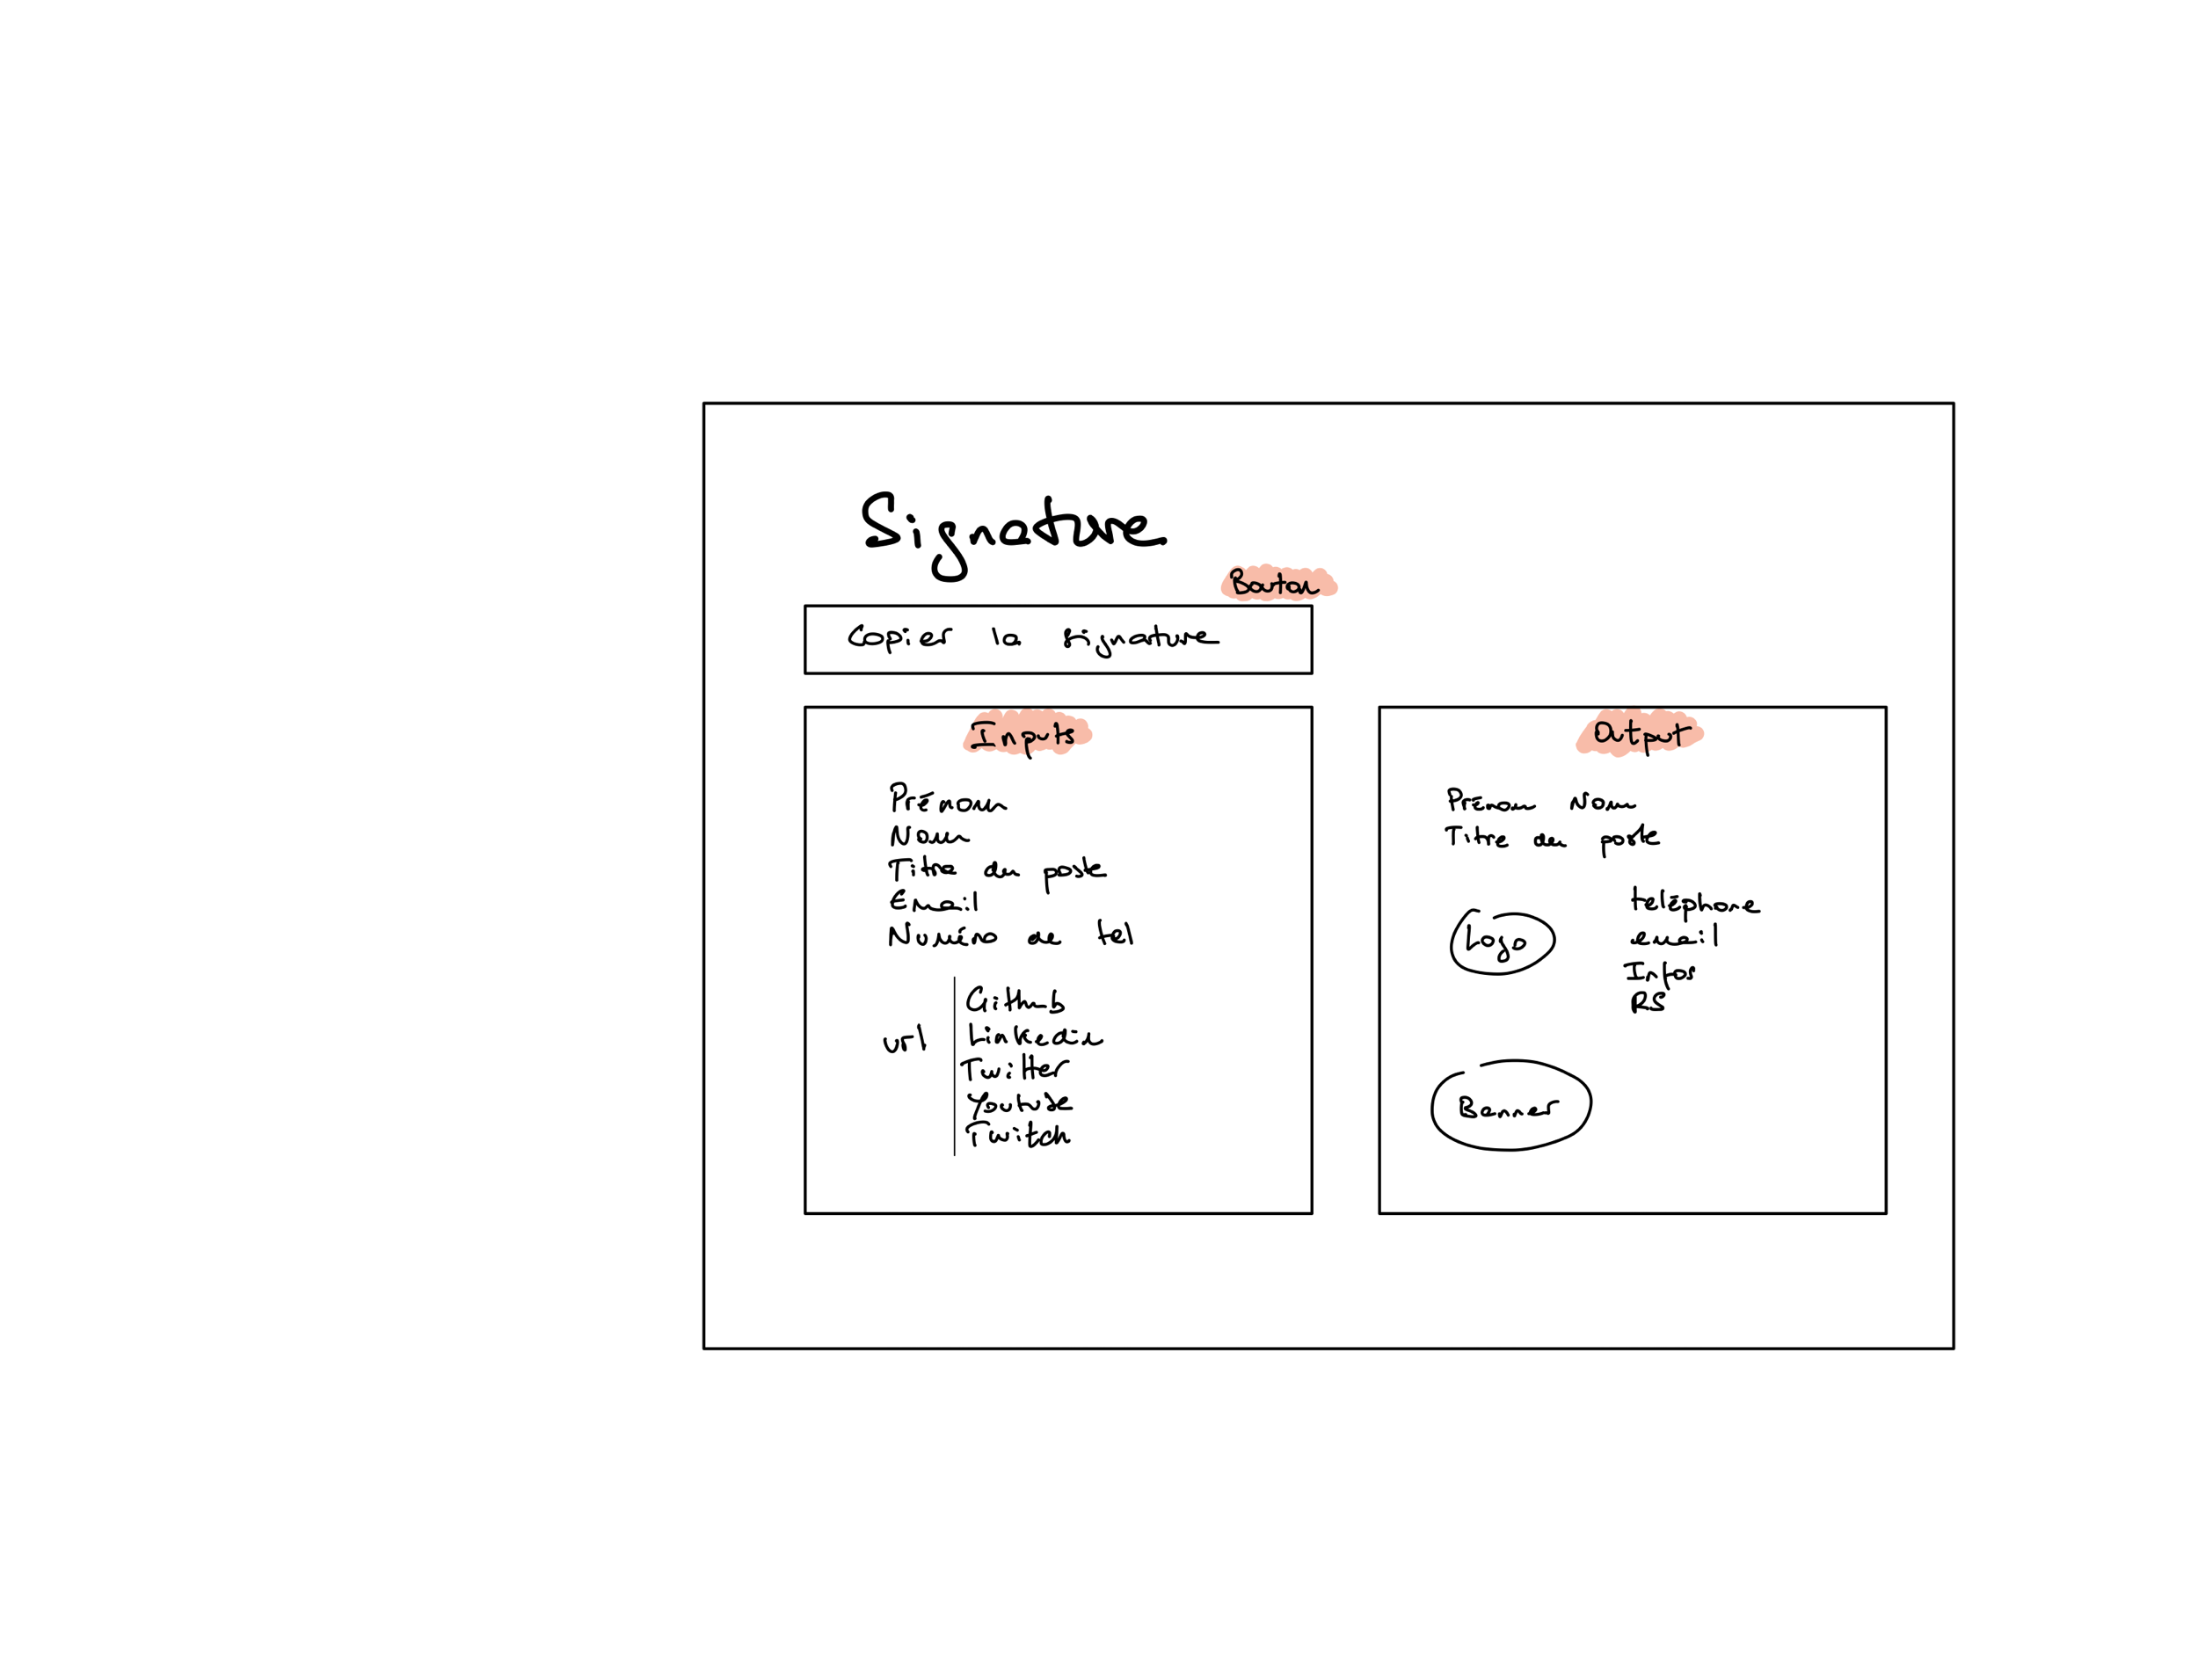 Signature
Bouton
Copier la signature
Inputs
Prénom
Nom
Titre du poste
Email
Numéro de tel
url
Github
Linkedin
Twitter
Youtube
Twitch
Output
Prénom Nom
Titre du poste
Logo
téléphone
email
Infos
RS
Banner